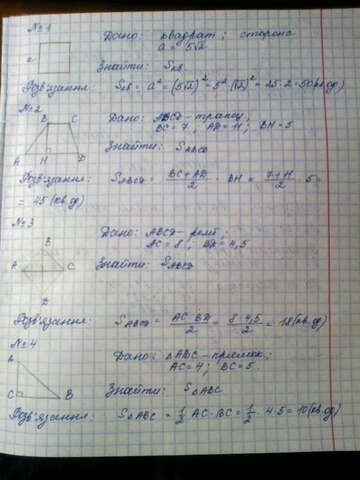 №1
Дано: квадрат; сторона
a = 5√2
a
Знайти: Sкв
Розв'язання: Sкв = a² = (5√2)² = 5²·(√2)² = 25·2 = 50(кв.од)
№2
B C
Дано: ABCD - трапец,
BC = 7; AD = 11; BH = 5
Знайти: SABCD
A H D
Розв'язання: SABCD = BC + AD / 2 · BH = 7+11 / 2 · 5 =
= 45 (кв.од)
№3
Дано: ABCD - ромб,
B
AC = 8; BD = 4,5
A C
Знайти: SABCD
D
Розв'язання: SABCD = AC·BD / 2 = 8·4,5 / 2 = 18(кв.од)
№4
A
Дано: △ABC - прямок;
AC = 4; BC = 5
C B
Знайти: S△ABC
Розв'язання: S△ABC = 1/2 AC·BC = 1/2 · 4·5 = 10(кв.од)